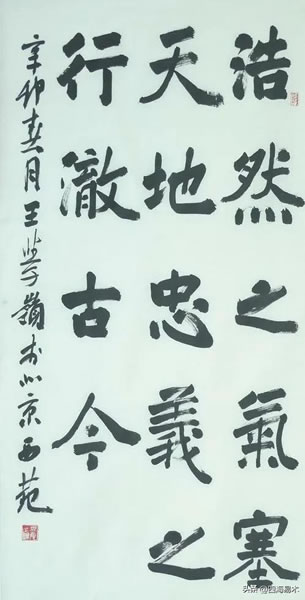 浩然之氣塞
天地忠義之
行澈古今
辛卯春月王学嶺於北京西苑
头条@四海嘉木